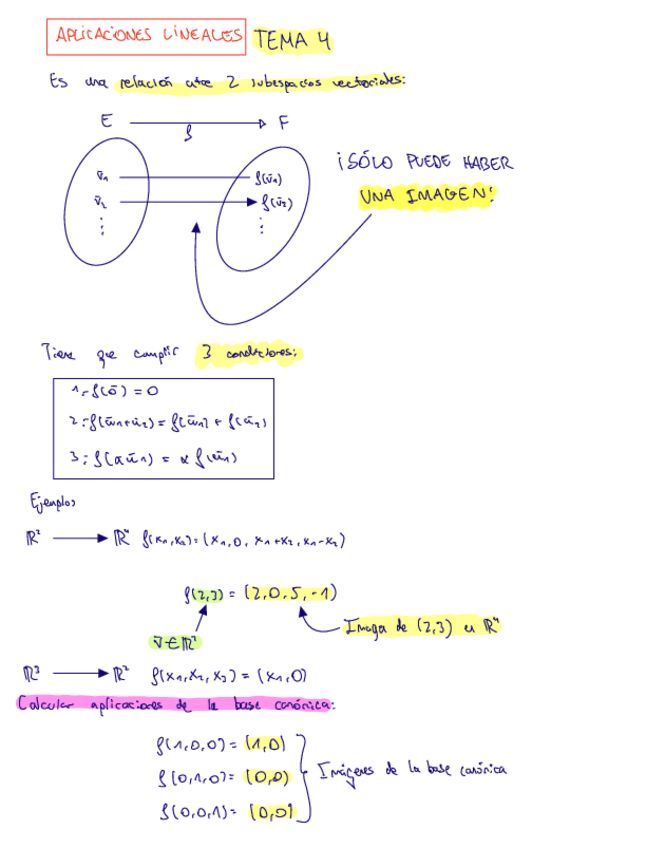 APLICACIONES LINEALES TEMA 4
Es una relación entre 2 subespacios vectoriales:
E → F
f
v̄₁ f(v̄₁)
v̄₂ f(v̄₂)
⋮ ⋮
¡SÓLO PUEDE HABER
UNA IMAGEN!
Tiene que cumplir 3 condiciones:
1.- f(ō) = 0
2.- f(ū₁+ū₂) = f(ū₁) + f(ū₂)
3.- f(αū₁) = α f(ū₁)
Ejemplos
ℝ² → ℝ⁴ f(x₁,x₂) = (x₁, 0, x₁+x₂, x₁-x₂)
f(2,3) = (2,0,5,-1)
Imagen de (2,3) en ℝ⁴
v̄ ∈ ℝ²
ℝ³ → ℝ² f(x₁,x₂,x₃) = (x₁,0)
Calcular aplicaciones de la base canónica:
f(1,0,0) = (1,0)
f(0,1,0) = (0,0)
Imágenes de la base canónica
f(0,0,1) = (0,0)